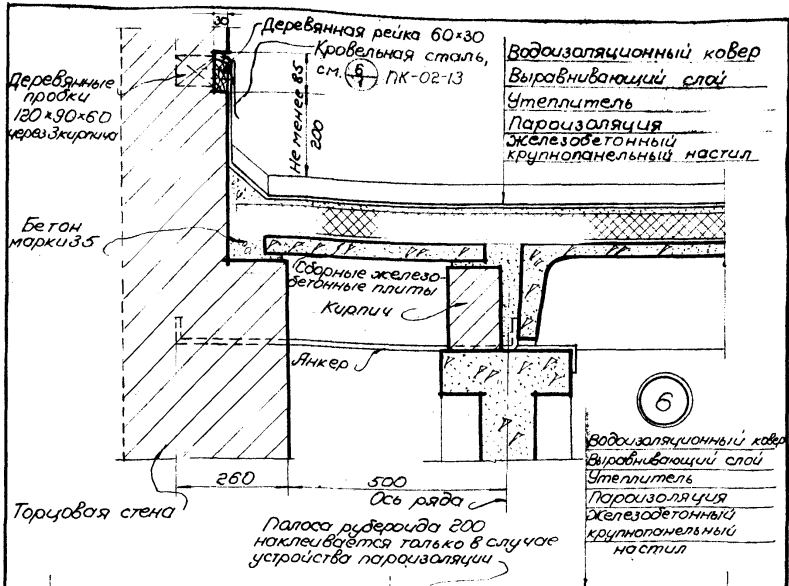 30
Деревянная рейка 60×30
Кровельная сталь,
см. 6/7 ПК-02-13
Деревянные
пробки
120×90×60
через 3 кирпича
Не менее 85
200
Водоизоляционный ковер
Выравнивающий слой
Утеплитель
Пароизоляция
Железобетонный
крупнопанельный настил
Бетон
марки 35
Сборные железо-
бетонные плиты
Кирпич
Анкер
6
260
500
Ось ряда
Торцовая стена
Водоизоляционный ковер
Выравнивающий слой
Утеплитель
Пароизоляция
Железобетонный
крупнопанельный
настил
Полоса рубероида 200
наклеивается только в случае
устройства пароизоляции